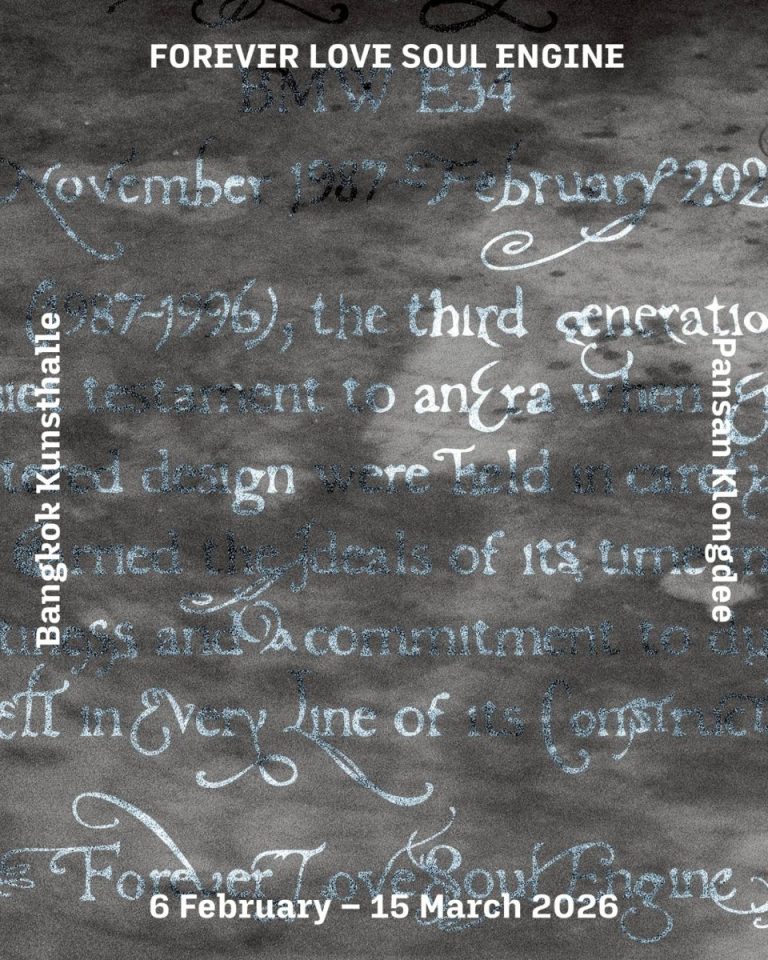 FOREVER LOVE SOUL ENGINE
BMW E34
November 1987 – February 202
(1987–1996), the third generatio
testament to an Era when
design were held in
the Ideals of its time
and A commitment to
in Every Line of its Construct
Forever Love Soul Engine
Bangkok Kunsthalle
Pansan Klongdee
6 February – 15 March 2026